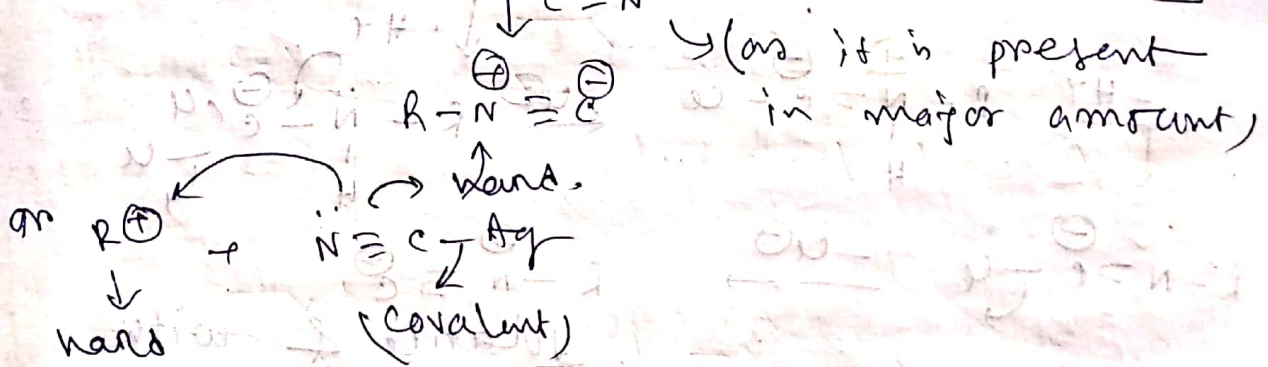 C = N
↳(as it is present
R - N⊕ ≡ C⊖
in major amount)
↑ Hard.
or R⊕ + N̈ ≡ C - Ag
↓ ↓
hard (covalent)